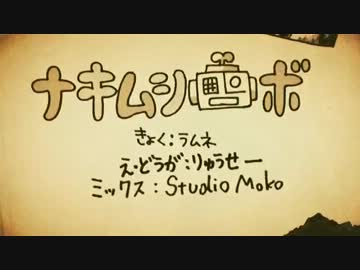 ナキムシロボ
きょく：ラムネ
え・どうが：りゅうせー
ミックス：Studio Moko